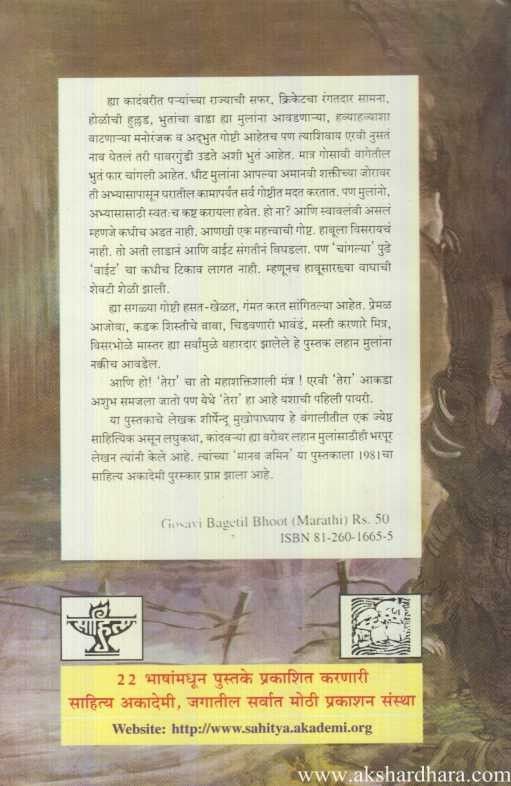 ह्या कादंबरीत पऱ्यांच्या राज्याची सफर, क्रिकेटचा रंगतदार सामना,
होळीची हुल्लड, भुतांचा वाडा ह्या मुलांना आवडणाऱ्या, हव्याहव्याशा
वाटणाऱ्या मनोरंजक व अद्भुत गोष्टी आहेतच पण त्याशिवाय एरवी नुसतं
नाव घेतलं तरी घाबरगुंडी उडते अशी भुतं आहेत. मात्र गोसावी बागेतील
भुतं फार चांगली आहेत. धीट मुलांना आपल्या अमानवी शक्तीच्या जोरावर
ती अभ्यासापासून घरातील कामापर्यंत सर्व गोष्टीत मदत करतात. पण मुलांनो,
अभ्यासासाठी स्वतःच कष्ट करायला हवेत. हो ना? आणि स्वावलंबी असलं
म्हणजे कधीच अडत नाही. आणखी एक महत्त्वाची गोष्ट. हाबूला विसरायचं
नाही. तो अती लाडानं आणि वाईट संगतीनं बिघडला. पण 'चांगल्या' पुढे
'वाईट' चा कधीच टिकाव लागत नाही. म्हणूनच हाबूसारख्या वाघाची
शेवटी शेळी झाली.
ह्या सगळ्या गोष्टी हसत-खेळत, गंमत करत सांगितल्या आहेत. प्रेमळ
आजोबा, कडक शिस्तीचे बाबा, चिडवणारी भावंडं, मस्ती करणारे मित्र,
विसरभोळे मास्तर ह्या सर्वांमुळे बहारदार झालेले हे पुस्तक लहान मुलांना
नक्कीच आवडेल.
आणि हो! 'तेरा' चा तो महाशक्तिशाली मंत्र ! एरवी 'तेरा' आकडा
अशुभ समजला जातो पण येथे 'तेरा' हा आहे यशाची पहिली पायरी.
या पुस्तकाचे लेखक शीर्षेन्दु मुखोपाध्याय हे बंगालीतील एक ज्येष्ठ
साहित्यिक असून लघुकथा, कादंबऱ्या ह्या बरोबर लहान मुलांसाठीही भरपूर
लेखन त्यांनी केले आहे. त्यांच्या 'मानव जमिन' या पुस्तकाला 1981चा
साहित्य अकादेमी पुरस्कार प्राप्त झाला आहे.
Gosavi Bagetil Bhoot (Marathi) Rs. 50
ISBN 81-260-1665-5
साहित्य
22 भाषांमधून पुस्तके प्रकाशित करणारी
साहित्य अकादेमी, जगातील सर्वात मोठी प्रकाशन संस्था
Website: http://www.sahitya.akademi.org
www.akshardhara.com